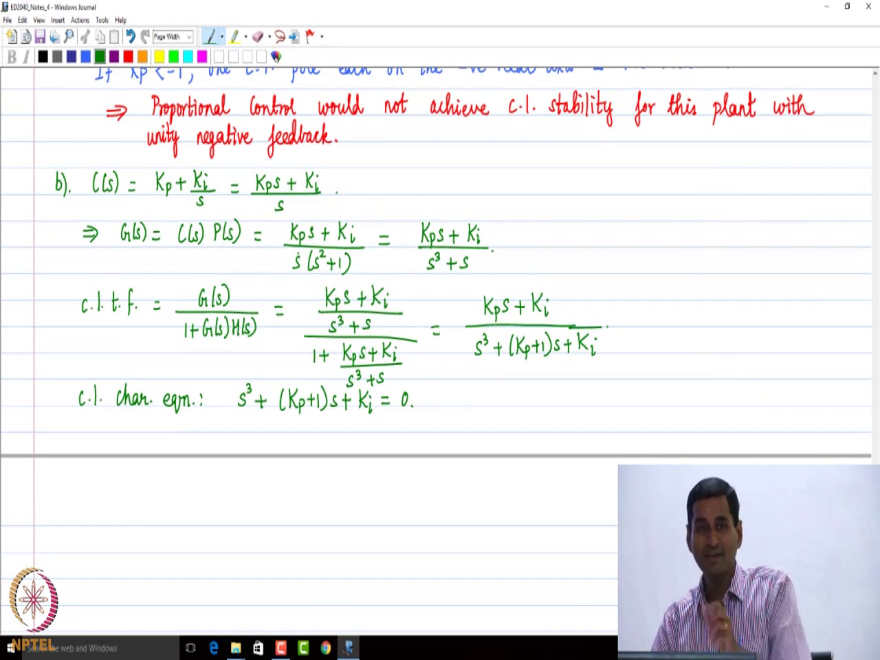 ED2040_Notes_4 - Windows Journal
File Edit View Insert Actions Tools Help
Page Width
B I
If Kp < -1, one c.l. pole each on the -ve real axis
⇒ Proportional Control would not achieve c.l. stability for this plant with
unity negative feedback.
b). C(s) = Kp + Ki/s = (Kps + Ki)/s .
⇒ G(s) = C(s) P(s) = (Kps + Ki)/(s(s²+1)) = (Kps + Ki)/(s³+s) .
c.l.t.f. = G(s)/(1+G(s)H(s)) = ((Kps+Ki)/(s³+s))/(1+(Kps+Ki)/(s³+s)) = (Kps+Ki)/(s³+(Kp+1)s+Ki) .
c.l. char. eqn.: s³ + (Kp+1)s + Ki = 0.
NPTEL
the web and Windows